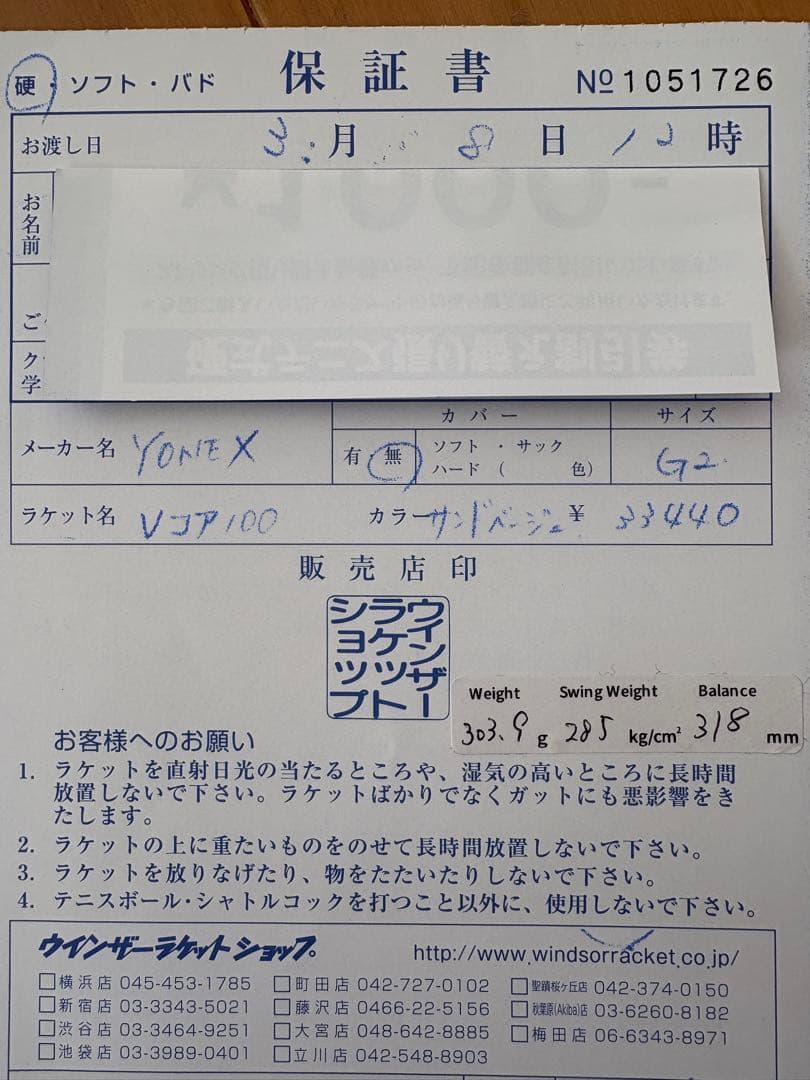 硬・ソフト・バド 保証書 No 1051726
お渡し日 3月 8日 12時
お名前
ご
ク
学
メーカー名 YONEX
カバー
有 無 ソフト・サック
ハード( 色)
サイズ
G2
ラケット名 Vコア100 カラー サンドベージュ ¥ 33440
販売店印
ウインザー
ラケット
ショップ
Weight Swing Weight Balance
303.9 g 285 kg/cm² 318 mm
お客様へのお願い
1. ラケットを直射日光の当たるところや、湿気の高いところに長時間
放置しないで下さい。ラケットばかりでなくガットにも悪影響をき
たします。
2. ラケットの上に重たいものをのせて長時間放置しないで下さい。
3. ラケットを放りなげたり、物をたたいたりしないで下さい。
4. テニスボール・シャトルコックを打つこと以外に、使用しないで下さい。
ウインザーラケットショップ。 http://www.windsorracket.co.jp/
□横浜店 045-453-1785 □町田店 042-727-0102 □聖蹟桜ヶ丘店 042-374-0150
□新宿店 03-3343-5021 □藤沢店 0466-22-5156 □秋葉原(Akiba)店 03-6260-8182
□渋谷店 03-3464-9251 □大宮店 048-642-8885 □梅田店 06-6343-8971
□池袋店 03-3989-0401 □立川店 042-548-8903